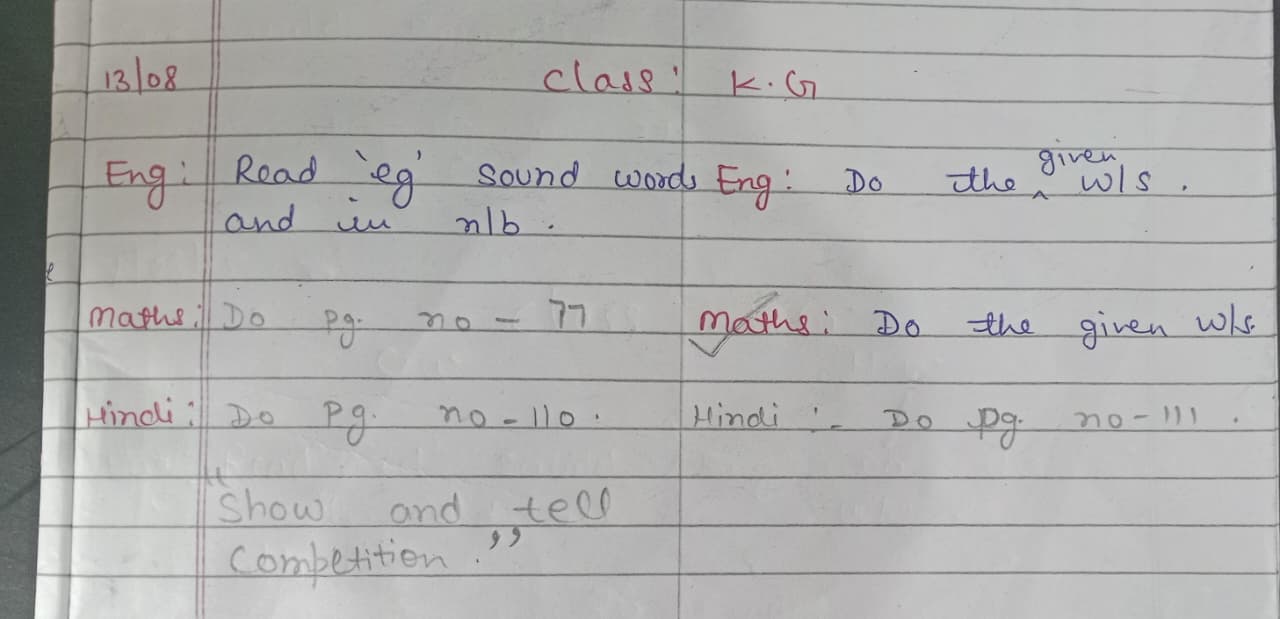 13/08 Class: K.G
Eng: Read 'eg' sound words Eng: Do the given w/s.
and in n/b.
Maths: Do pg. no - 77 Maths: Do the given w/s.
Hindi: Do Pg. no - 110. Hindi :- Do pg. no - 111.
"Show and tell
Competition."